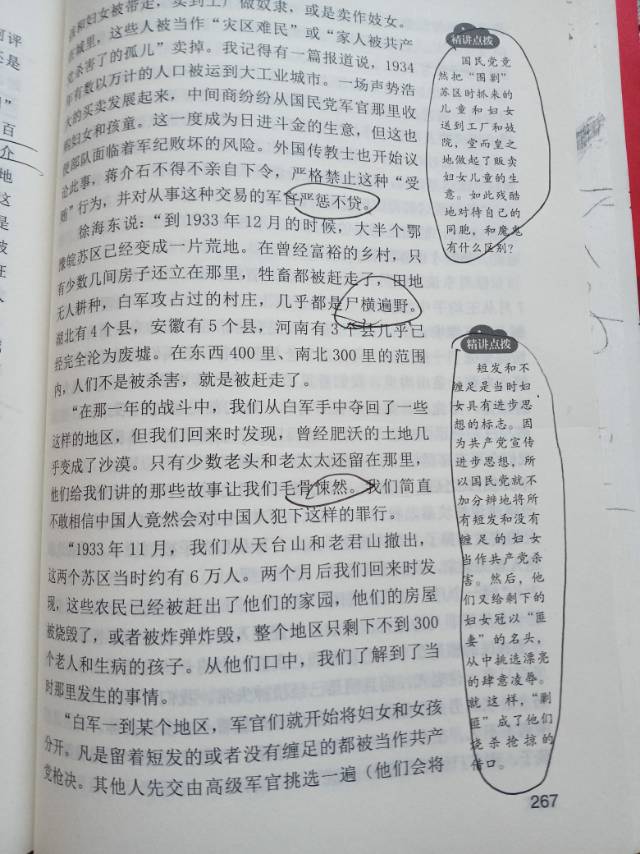 和妇女被带走，卖到工厂做奴隶，或是卖作妓女。
城里，这些人被当作“灾区难民”或“家人被共产
党杀害了的孤儿”卖掉。我记得有一篇报道说，1934
年有数以万计的人口被运到大工业城市。一场声势浩
大的买卖发展起来，中间商纷纷从国民党军官那里收
妇女和孩童。这一度成为日进斗金的生意，但这也
使部队面临着军纪败坏的风险。外国传教士也开始议
论此事，蒋介石不得不亲自下令，严格禁止这种“受
贿”行为，并对从事这种交易的军官严惩不贷。
徐海东说：“到 1933 年 12 月的时候，大半个鄂
豫皖苏区已经变成一片荒地。在曾经富裕的乡村，只
有少数几间房子还立在那里，牲畜都被赶走了，田地
无人耕种，白军攻占过的村庄，几乎都是尸横遍野。
湖北有 4 个县，安徽有 5 个县，河南有 3 个县几乎已
经完全沦为废墟。在东西 400 里、南北 300 里的范围
内，人们不是被杀害，就是被赶走了。
“在那一年的战斗中，我们从白军手中夺回了一些
这样的地区，但我们回来时发现，曾经肥沃的土地几
乎变成了沙漠。只有少数老头和老太太还留在那里，
他们给我们讲的那些故事让我们毛骨悚然。我们简直
不敢相信中国人竟然会对中国人犯下这样的罪行。
“1933 年 11 月，我们从天台山和老君山撤出，
这两个苏区当时约有 6 万人。两个月后我们回来时发
现，这些农民已经被赶出了他们的家园，他们的房屋
被烧毁了，或者被炸弹炸毁，整个地区只剩下不到 300
个老人和生病的孩子。从他们口中，我们了解到了当
时那里发生的事情。
“白军一到某个地区，军官们就开始将妇女和女孩
分开。凡是留着短发的或者没有缠足的都被当作共产
党枪决。其他人先交由高级军官挑选一遍（他们会将
精讲点拨
国民党竟
然把“围剿”
苏区时抓来的
儿童和妇女
送到工厂和妓
院，堂而皇之
地做起了贩卖
妇女儿童的生
意。如此残酷
地对待自己的
同胞，和魔鬼
有什么区别？
精讲点拨
短发和不
缠足是当时妇
女具有进步思
想的标志。因
为共产党宣传
进步思想，所
以国民党就不
加分辨地将所
有短发和没有
缠足的妇女
当作共产党杀
害。然后，他
们又给剩下的
妇女冠以“匪
妻”的名头，
从中挑选漂亮
的肆意凌辱。
就这样，“剿
匪”成了他们
烧杀抢掠的
借口。
267
评
是
百
介
地
这